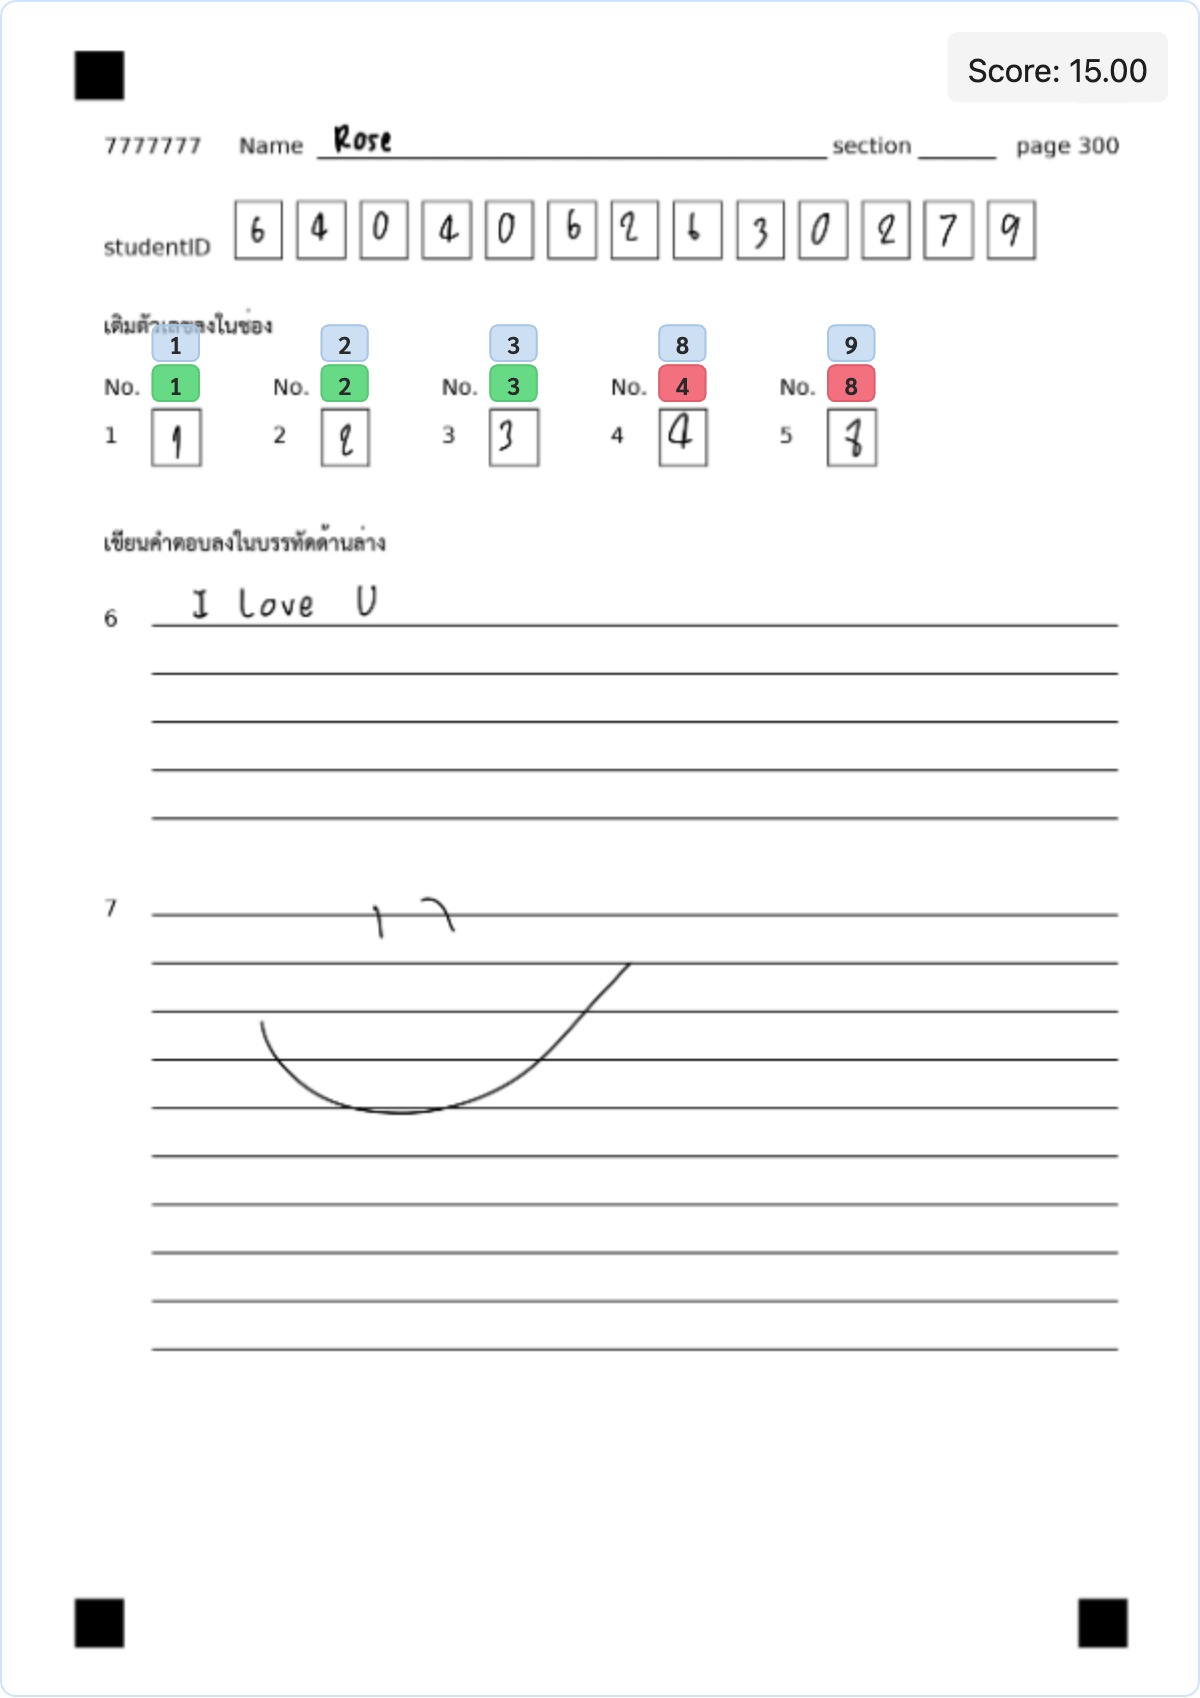 Score: 15.00
7777777 Name Rose section page 300
studentID 6 4 0 4 0 6 2 6 3 0 2 7 9
เติมตัวเลขลงในช่อง
1 2 3 8 9
No. 1 No. 2 No. 3 No. 4 No. 8
1 1 2 2 3 3 4 4 5 8
เขียนคำตอบลงในบรรทัดด้านล่าง
6 I Love U
7